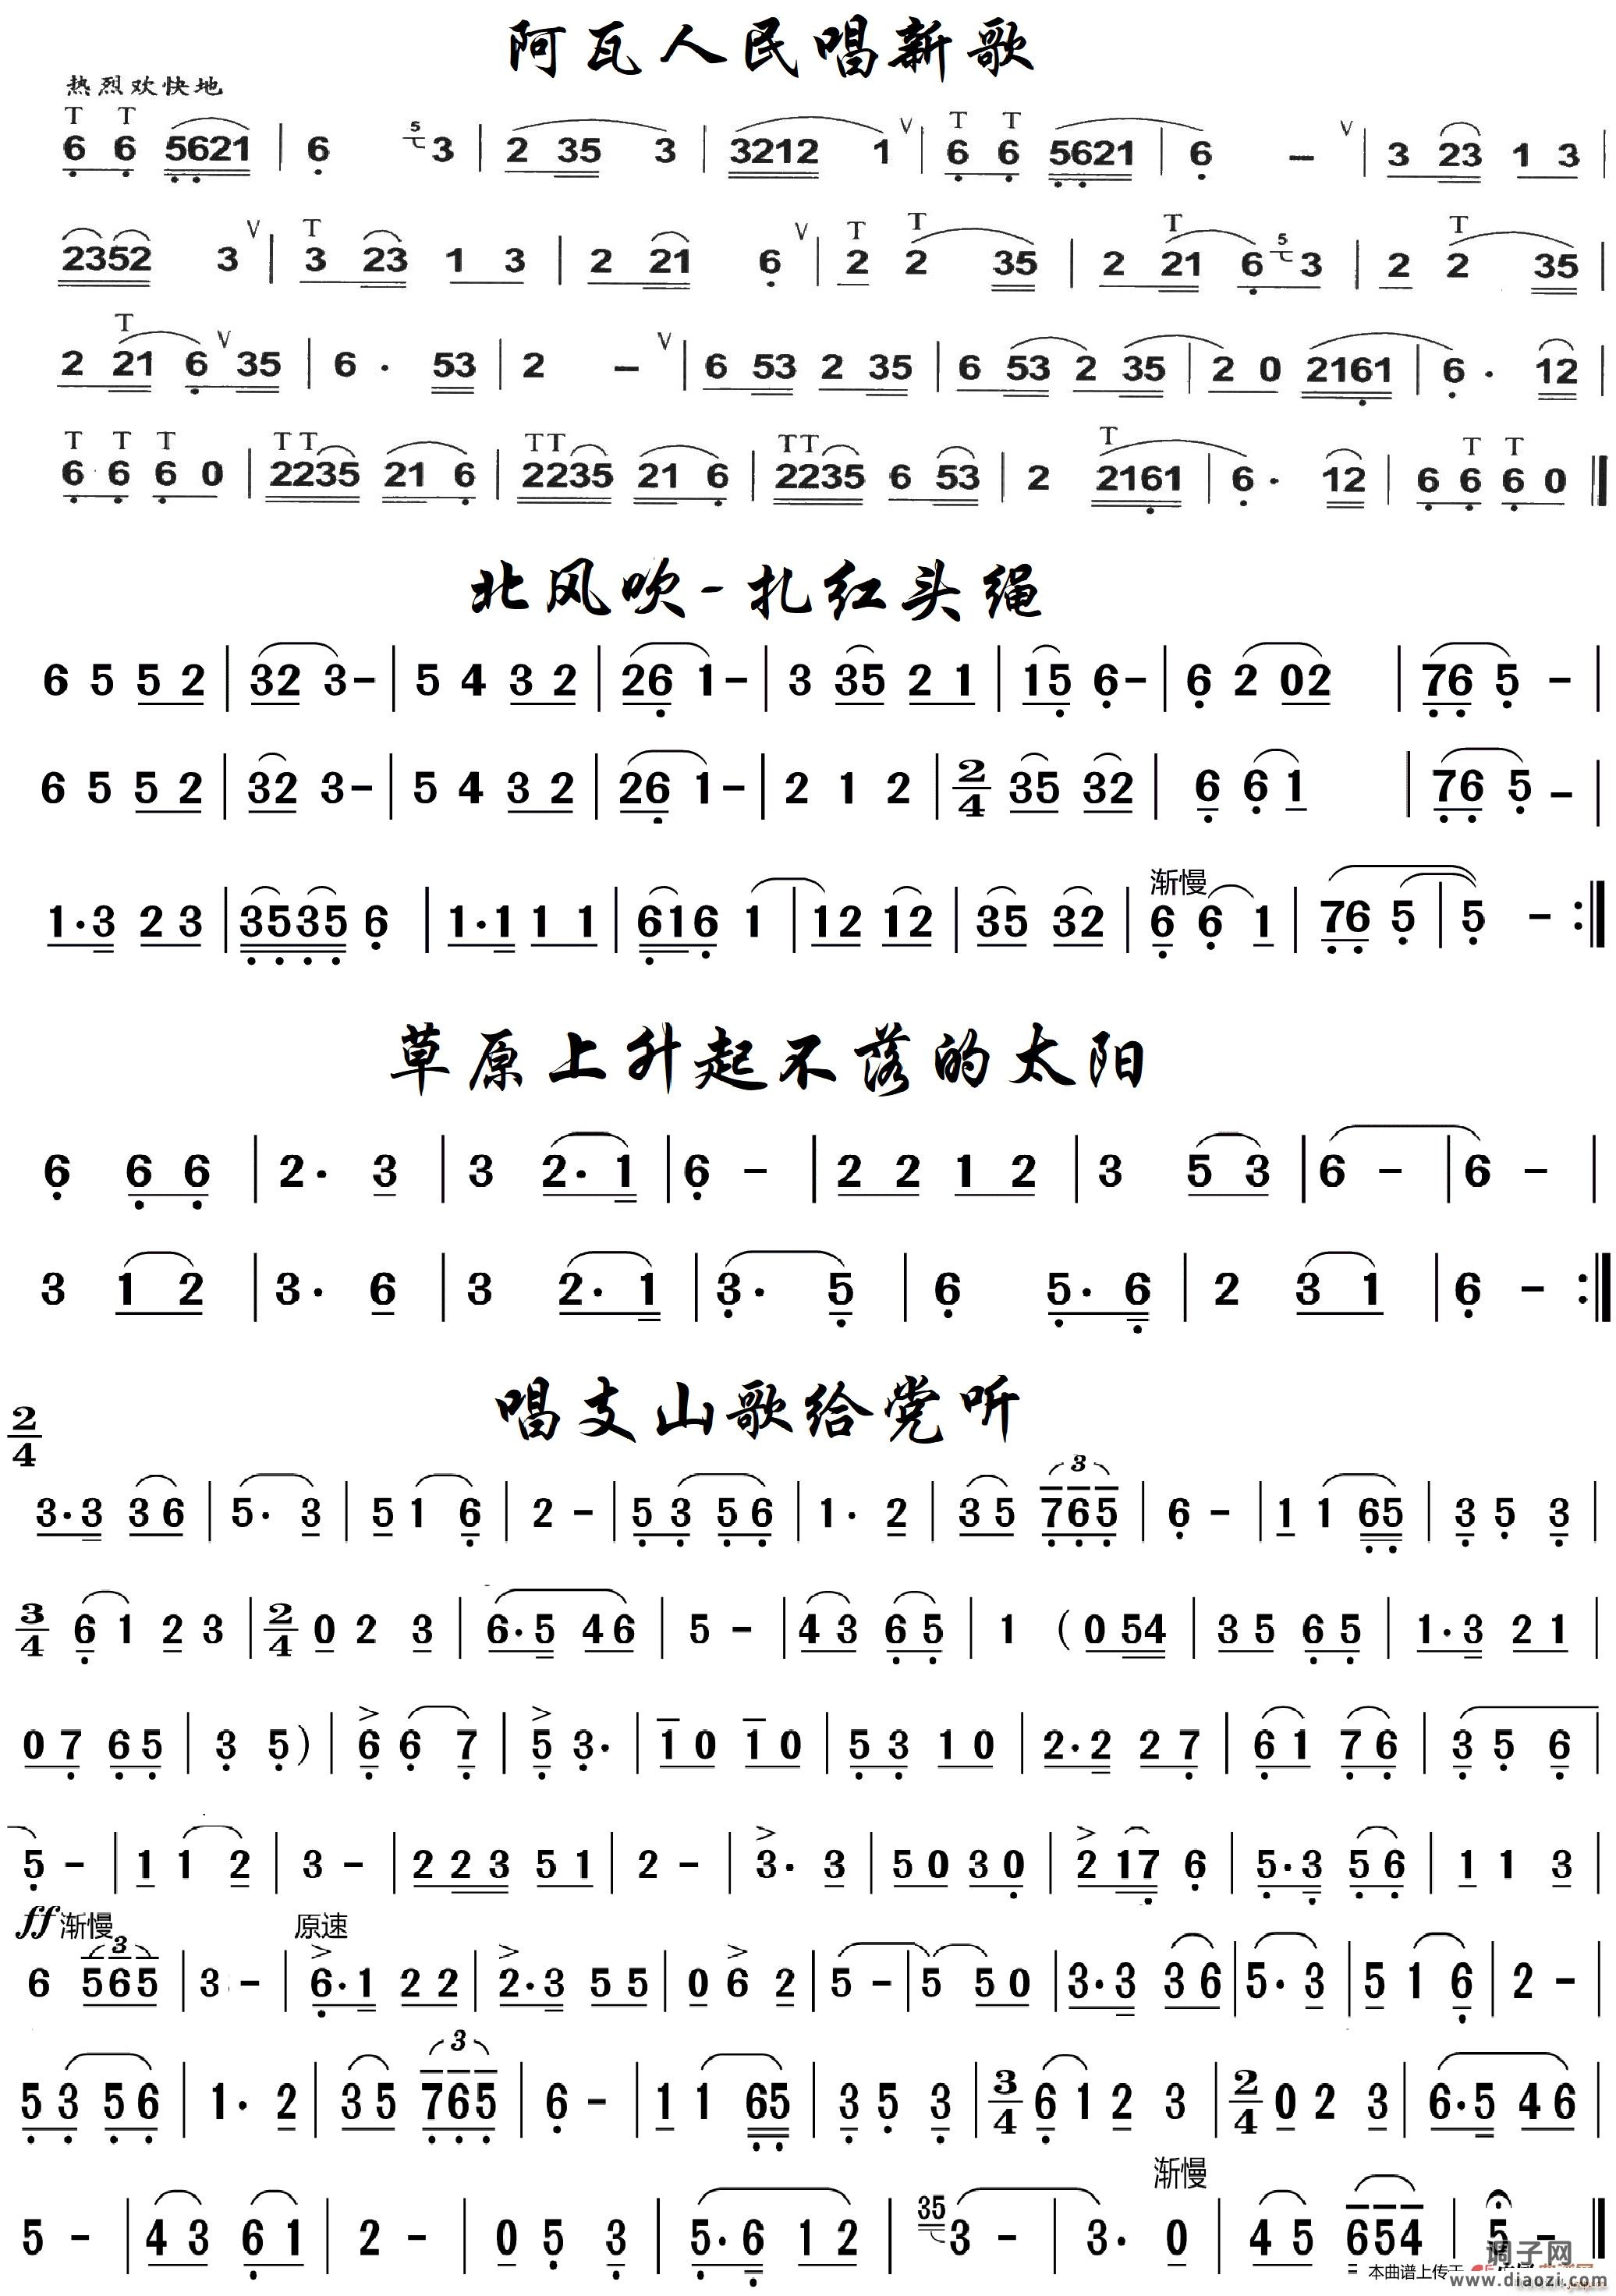 阿瓦人民唱新歌
热烈欢快地
T T 5 V T T V
6 6 5621 | 6 3 | 2 35 3 | 3212 1 | 6 6 5621 | 6 – | 3 23 1 3 |
V T V T T T 5 T
2352 3 | 3 23 1 3 | 2 21 6 | 2 2 35 | 2 21 6 3 | 2 2 35 |
T V V
2 21 6 35 | 6 · 53 | 2 – | 6 53 2 35 | 6 53 2 35 | 2 0 2161 | 6 · 12 |
T T T T T T T T T T T T
6 6 6 0 | 2235 21 6 | 2235 21 6 | 2235 6 53 | 2 2161 | 6 · 12 | 6 6 6 0 ‖
北风吹-扎红头绳
6 5 5 2 | 32 3 – | 5 4 3 2 | 26 1 – | 3 35 2 1 | 15 6 – | 6 2 02 | 76 5 – |
6 5 5 2 | 32 3 – | 5 4 3 2 | 26 1 – | 2 1 2 | 2/4 35 32 | 6 6 1 | 76 5 – |
渐慢
1·3 2 3 | 3535 6 | 1·1 1 1 | 616 1 | 12 12 | 35 32 | 6 6 1 | 76 5 | 5 – :‖
草原上升起不落的太阳
6 6 6 | 2· 3 | 3 2·1 | 6 – | 2 2 1 2 | 3 5 3 | 6 – | 6 – |
3 1 2 | 3· 6 | 3 2·1 | 3· 5 | 6 5·6 | 2 3 1 | 6 – :‖
唱支山歌给党听
2/4
3
3·3 3 6 | 5· 3 | 5 1 6 | 2 – | 5 3 5 6 | 1· 2 | 3 5 7 6 5 | 6 – | 1 1 65 | 3 5 3 |
3/4 6 1 2 3 | 2/4 0 2 3 | 6·5 4 6 | 5 – | 4 3 6 5 | 1 (0 54 | 3 5 6 5 | 1·3 2 1 |
> >
0 7 6 5 | 3 5) | 6 6 7 | 5 3· | 1 0 1 0 | 5 3 1 0 | 2·2 2 7 | 6 1 7 6 | 3 5 6 |
> >
5 – | 1 1 2 | 3 – | 2 2 3 5 1 | 2 – | 3· 3 | 5 0 3 0 | 2 17 6 | 5·3 5 6 | 1 1 3 |
ff 渐慢 原速
3 > > >
6 5 6 5 | 3 – | 6·1 2 2 | 2·3 5 5 | 0 6 2 | 5 – | 5 5 0 | 3·3 3 6 | 5· 3 | 5 1 6 | 2 – |
3
5 3 5 6 | 1· 2 | 3 5 7 6 5 | 6 – | 1 1 65 | 3 5 3 | 3/4 6 1 2 3 | 2/4 0 2 3 | 6·5 4 6 |
渐慢
35
5 – | 4 3 6 1 | 2 – | 0 5 3 | 5·6 1 2 | 3 – | 3· 0 | 4 5 6 5 4 | 5 – ‖
调子网
本曲谱上传于
www.diaozi.com